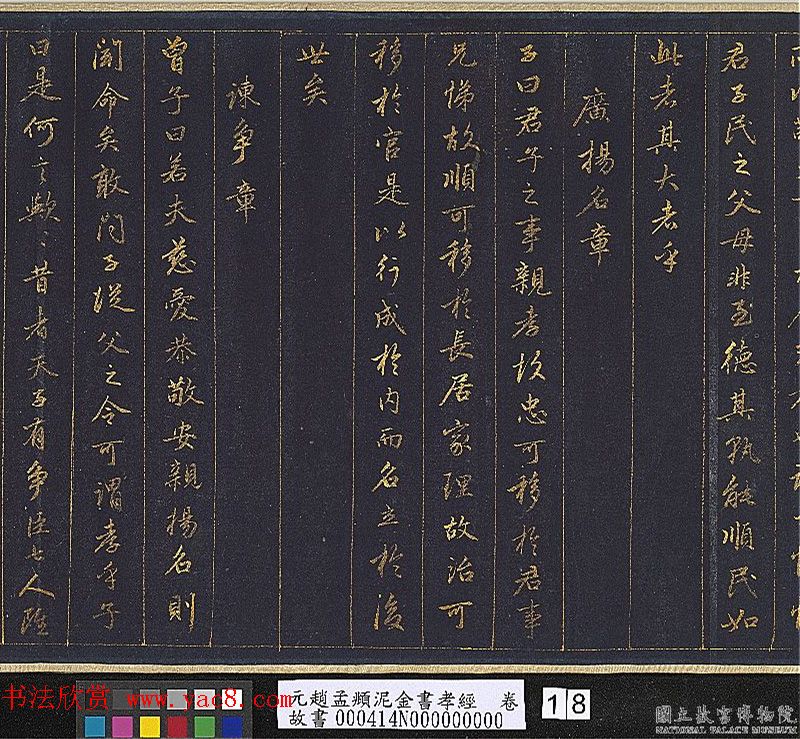 君子民之父母非至德其孰能順民如
此者其大者乎
廣揚名章
子曰君子之事親孝故忠可移於君事
兄悌故順可移於長居家理故治可
移於官是以行成於內而名立於後
世矣
諫爭章
曾子曰若夫慈愛恭敬安親揚名則
聞命矣敢問子從父之令可謂孝乎子
曰是何言歟〻昔者天子有爭臣七人雖
书法欣赏 www.yac8.com
元趙孟頫泥金書孝經 卷
故書000414N000000000
18
國立故宮博物院
NATIONAL PALACE MUSEUM